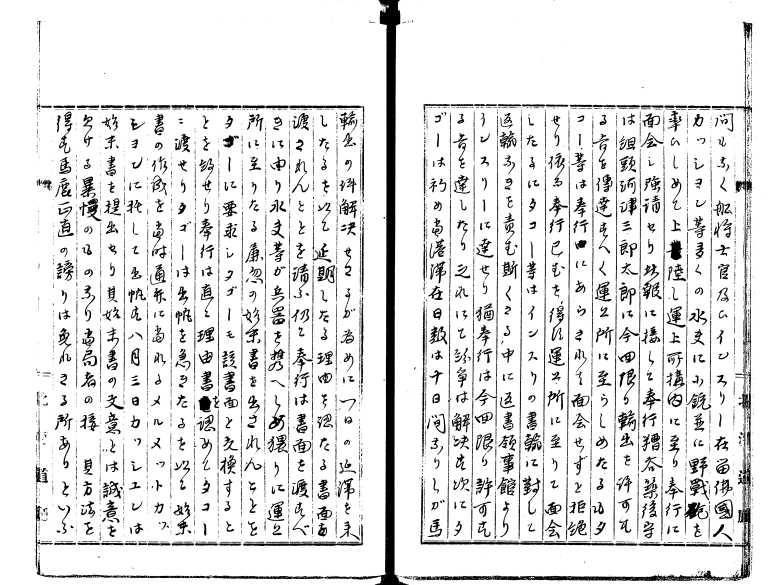 間もなく船将士官及ひインスリー在留佛國人
カツシヨン等多くの水夫に小銃並に野戰砲を
率ひしめて上陸し運上所構内に至り奉行に
面会し強請せり此報に接して奉行糟谷筑後守
は組頭河津三郎太郎に今回限り輸出を許可す
る旨を傳達すへく運上所に至らしめたるにタ
コー等は奉行にあらされは面会せすと拒絶
せり依て奉行已むを得す運上所に至りて面会
したるにタコー等はインスリの書翰に對して
返翰なきを責む斯くする中に返書領事館より
インスリーに達せり猶奉行は今回限り許可す
る旨を達したり之れにて紛争は解決す次にタ
ゴーは初め當港滞在日数は十日間なりしが馬
輸出の件解決せさるが為めに一日の延滞を来
したるを以て延期したる理由を認たる書面を
渡されんことを請ふ仍て奉行は書面を渡すへ
きに由り水夫等が兵器を携へしめ猥りに運上
所に至りたる麁忽の始末書を出されんことを
タゴーに要求しタゴーも該書面と交換すると
とを約せり奉行は直に理由書を認めてタコー
に渡せりタゴーは出帆を急きたるを以て始末
書の作成を當時通弁に當れるメルメツトカツ
シヨンに托して出帆す八月三日カツシヨンは
始末書を提出せり其始末書の文意とは誠意を
欠ける暴慢のものなり當局者の接 其方法を
得す馬鹿正直の謗りは免れさる所ありといふ